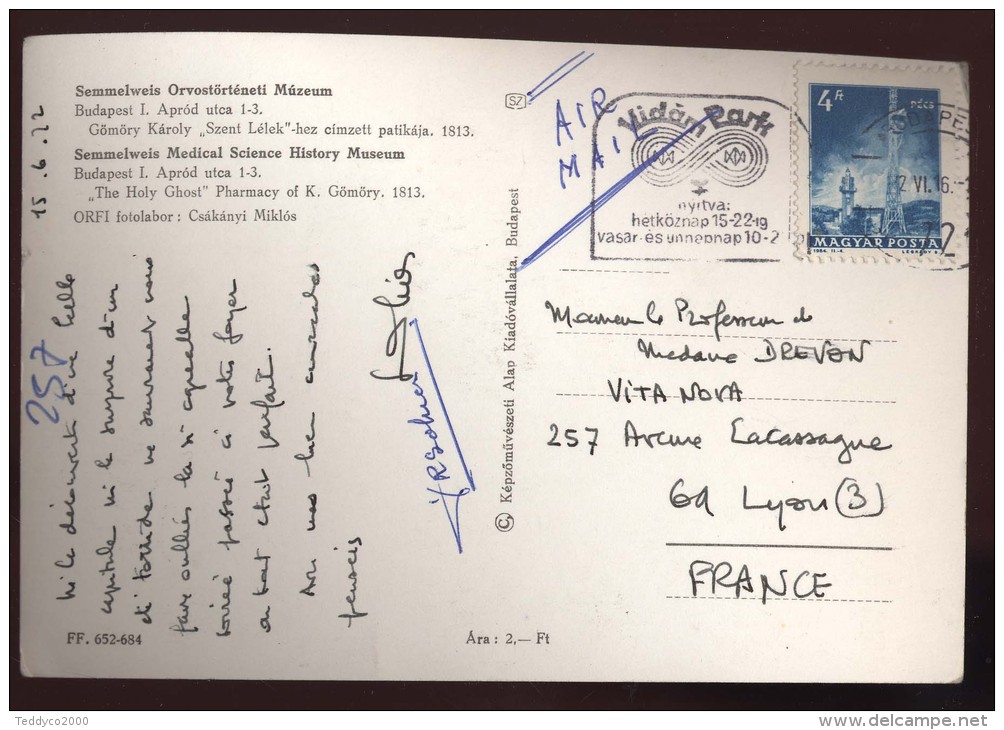 Semmelweis Orvostörténeti Múzeum
Budapest I. Apród utca 1-3.
Gömöry Károly „Szent Lélek"-hez címzett patikája. 1813.
Semmelweis Medical Science History Museum
Budapest I. Apród utca 1-3.
„The Holy Ghost" Pharmacy of K. Gömöry. 1813.
ORFI fotolabor : Csákányi Miklós
15.6.72
257
ni la découverte d'une belle
capitale ni la surprise d'un
été torride ne sauraient nous
faire oublier la si agréable
soirée passée à votre foyer
où tout était parfait.
Avec nos bien amicales
pensées
FF. 652-684
Ára : 2,— Ft
© Képzőművészeti Alap Kiadóvállalata, Budapest
SZ
AIR
MAIL
Vidám Park
nyitva:
hétköznap 15-22-ig
vasár- és ünnepnap 10-2
4 Ft
PÉCS
MAGYAR POSTA
BUDAPE
VI. 16.
72
Monsieur le Professeur et
Madame DREVON
VITA NOVA
257 Avenue Lacassagne
69 Lyon (3)
FRANCE
Teddyco2000
delcampe.net